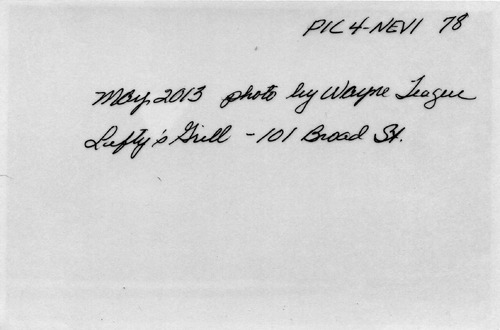 PIC 4-NEVI 78
May, 2013 photo by Wayne Teague
Lefty's Grill - 101 Broad St.